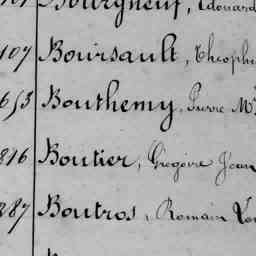 Bourgneuf, Edouard
107 Boursault, Théophi
653 Bouthemy, Pierre M
816 Boutier, Grégoire Jean
287 Boutros, Romain